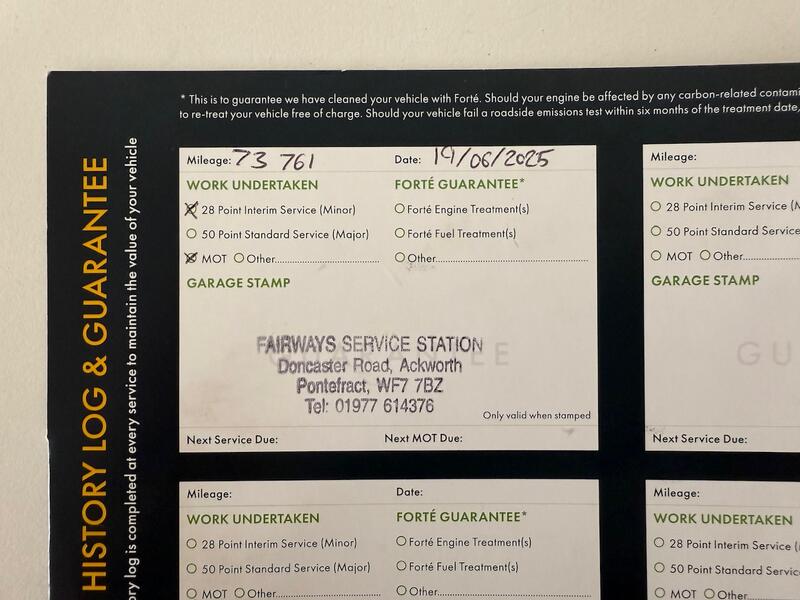 HISTORY LOG & GUARANTEE
ory log is completed at every service to maintain the value of your vehicle
* This is to guarantee we have cleaned your vehicle with Forté. Should your engine be affected by any carbon-related contami
to re-treat your vehicle free of charge. Should your vehicle fail a roadside emissions test within six months of the treatment date,
Mileage: 73 761 Date: 19/06/2025
WORK UNDERTAKEN FORTÉ GUARANTEE*
28 Point Interim Service (Minor) Forté Engine Treatment(s)
50 Point Standard Service (Major) Forté Fuel Treatment(s)
MOT Other Other
GARAGE STAMP
FAIRWAYS SERVICE STATION
Doncaster Road, Ackworth
Pontefract, WF7 7BZ
Tel: 01977 614376
Only valid when stamped
Next Service Due: Next MOT Due:
Mileage:
WORK UNDERTAKEN
28 Point Interim Service (M
50 Point Standard Service
MOT Other
GARAGE STAMP
GU
Next Service Due:
Mileage: Date:
WORK UNDERTAKEN FORTÉ GUARANTEE*
28 Point Interim Service (Minor) Forté Engine Treatment(s)
50 Point Standard Service (Major) Forté Fuel Treatment(s)
MOT Other Other
Mileage:
WORK UNDERTAKEN
28 Point Interim Service (
50 Point Standard Service
MOT Other